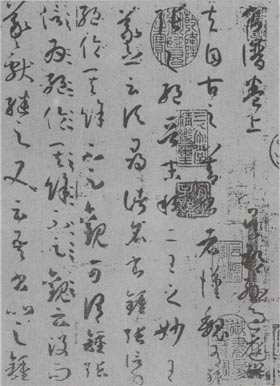 書譜卷上 吳郡孫過庭撰
夫自古之善書者漢魏有鍾
張之絕晉末稱二王之妙王
羲之云頃尋諸名書鍾張信為
絕倫其餘不足觀可謂鍾張
信為絕倫其餘不足觀云沒而
羲獻繼之又云吾書比之鍾